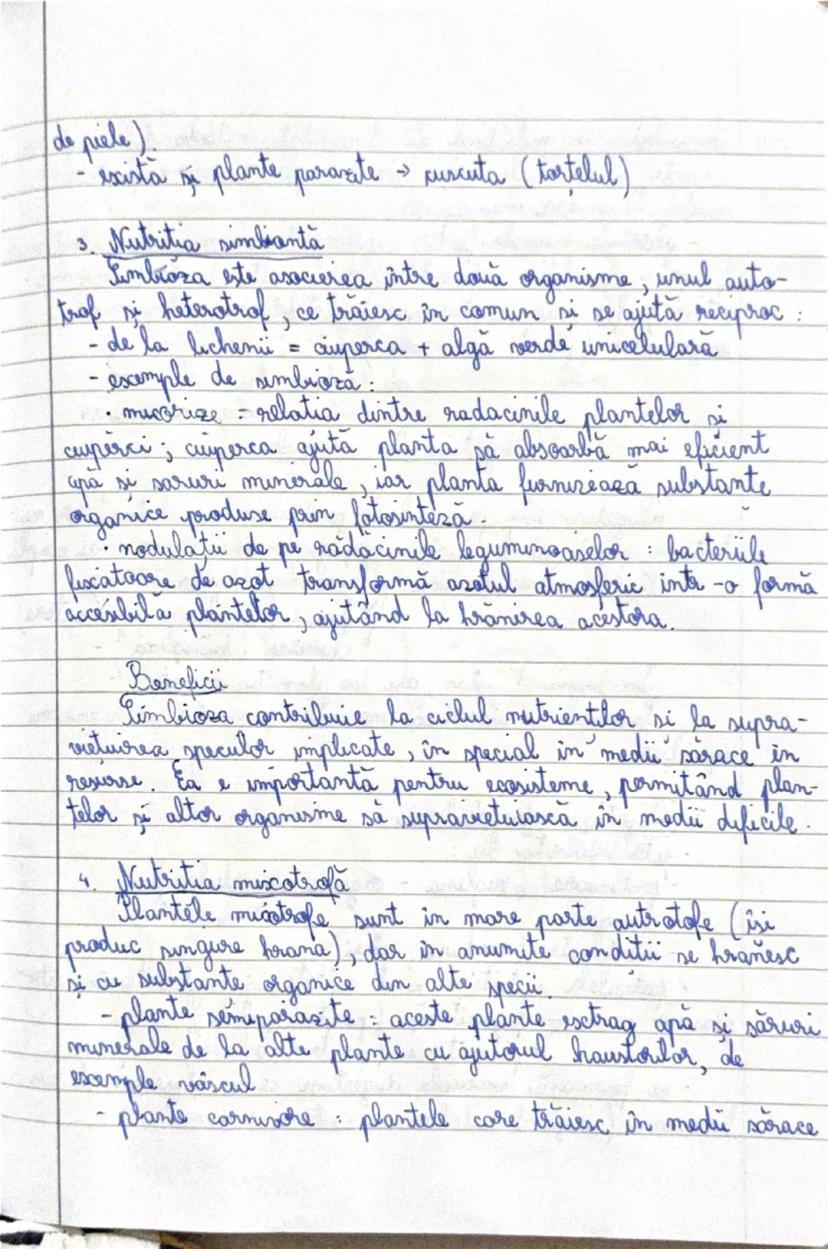 de piele).
- există și plante parazite → cuscuta (torțelul)
3. Nutriția simbiontă
Simbioza este asocierea între două organisme, unul auto-
trof și heterotrof, ce trăiesc în comun și se ajută reciproc:
- de la lichenii = ciuperca + algă verde unicelulară
- exemple de simbioză:
• micorize = relatia dintre radacinile plantelor si
ciuperci; ciuperca ajută planta să absoarbă mai eficient
apă și saruri minerale, iar planta furnizează substanțe
organice produse prin fotosinteză.
• nodulații de pe rădăcinile leguminoaselor: bacteriile
fixatoare de azot transformă azotul atmosferic intr-o formă
accesibilă plantelor, ajutând la hrănirea acestora.
Beneficii
Simbioza contribuie la ciclul nutrienților si la supra-
viețuirea speciilor implicate, în special în medii sărace în
resurse. Ea e importantă pentru ecosisteme, permitând plan-
telor și altor organisme să supraviețuiască în medii dificile.
4. Nutriția mixotrofă
Plantele mixotrofe sunt in mare parte autrotofe (își
produc singure hrana), dar in anumite condiții se hrănesc
și cu substanțe organice din alte specii.
- plante semiparazite = aceste plante extrag apă și săruri
minerale de la alte plante cu ajutorul haustorilor, de
exemple vâscul
- plante carnivore: plantele care trăiesc în medii sărace